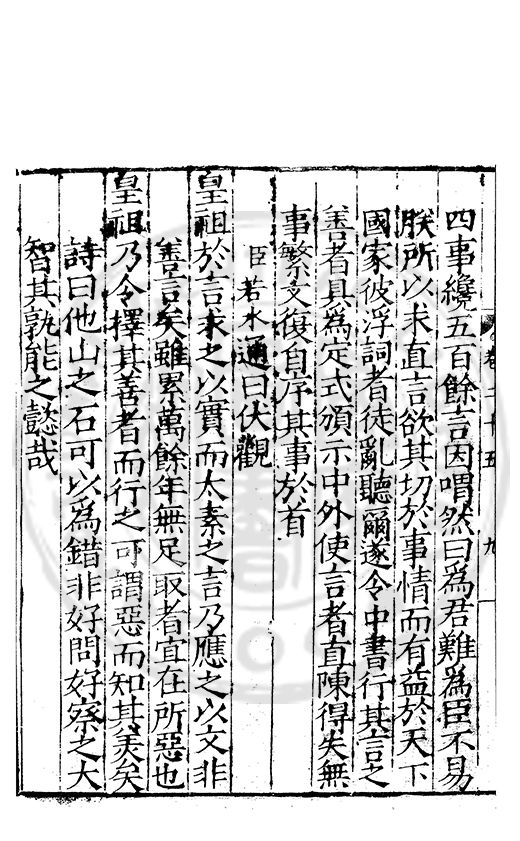 卷二十五 九
四事纔五百餘言因喟然曰為君難為臣不易
朕所以求直言欲其切於事情而有益於天下
國家彼浮詞者徒亂聽爾遂令中書行其言之
善者具為定式頒示中外使言者直陳得失無
事繁文復自序其事於首
臣若水通曰伏觀
皇祖於言求之以實而太素之言乃應之以文非
善言矣雖累萬餘年無足取者宜在所惡也
皇祖乃令擇其善者而行之可謂惡而知其美矣
詩曰他山之石可以為錯非好問好察之大
智其孰能之懿哉